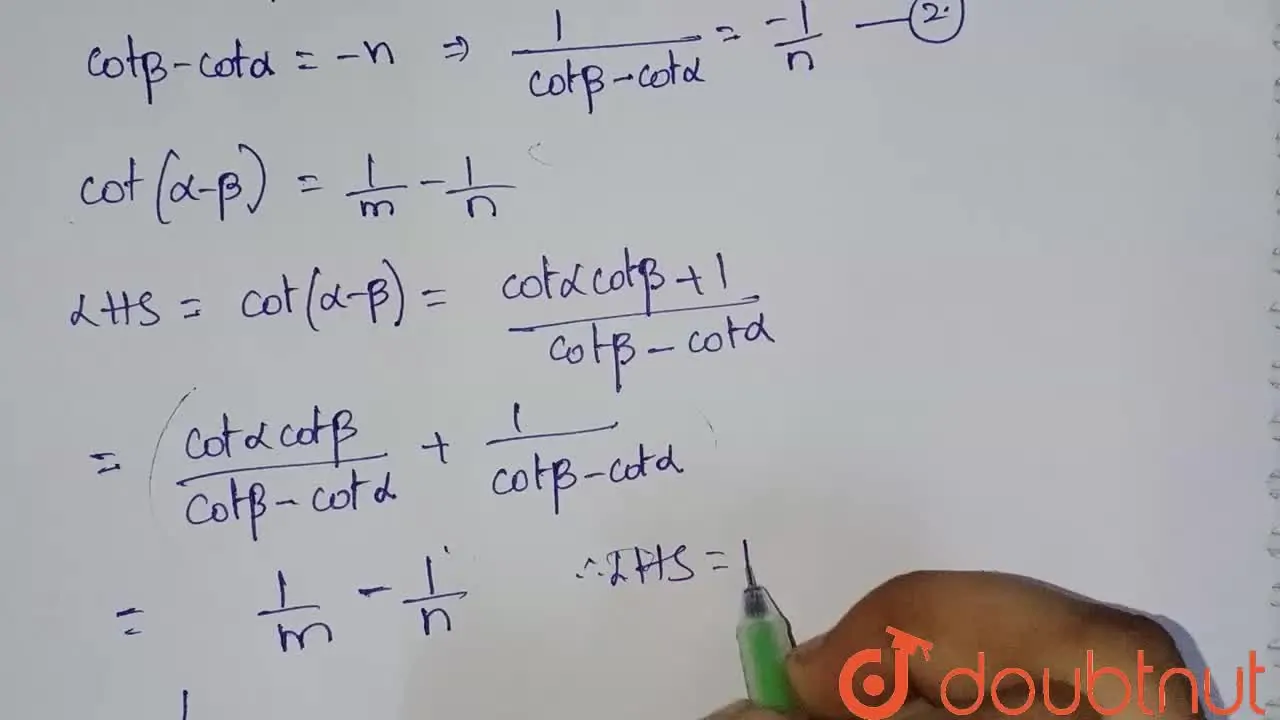 cotβ - cotα = -n ⇒ 1/(cotβ - cotα) = -1/n — ②
cot(α-β) = 1/m - 1/n
LHS = cot(α-β) = (cotα cotβ + 1)/(cotβ - cotα)
= (cotα cotβ)/(cotβ - cotα) + 1/(cotβ - cotα)
= 1/m - 1/n ∴ LHS = 1
doubtnut